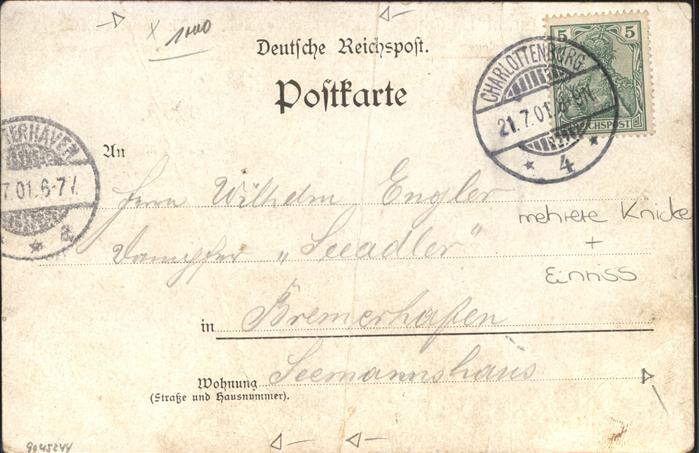 x 1000
Deutsche Reichspost.
Postkarte
5 5
REICHSPOST
CHARLOTTENBURG
21.7.01.
* 4 *
ERHAVEN
7.01.6-7
* a
An
Herrn Wilhelm Engler
Dampfer „Seeadler"
in Bremerhafen
Wohnung Seemannshaus
(Straße und Hausnummer).
mehrere Knicke
+
Einriss
9045244